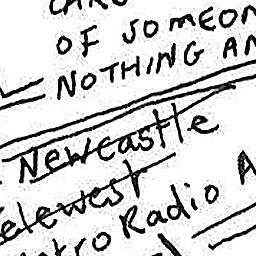 OF SOMEON
NOTHING AN
Newcastle
elewest
tro Radio A